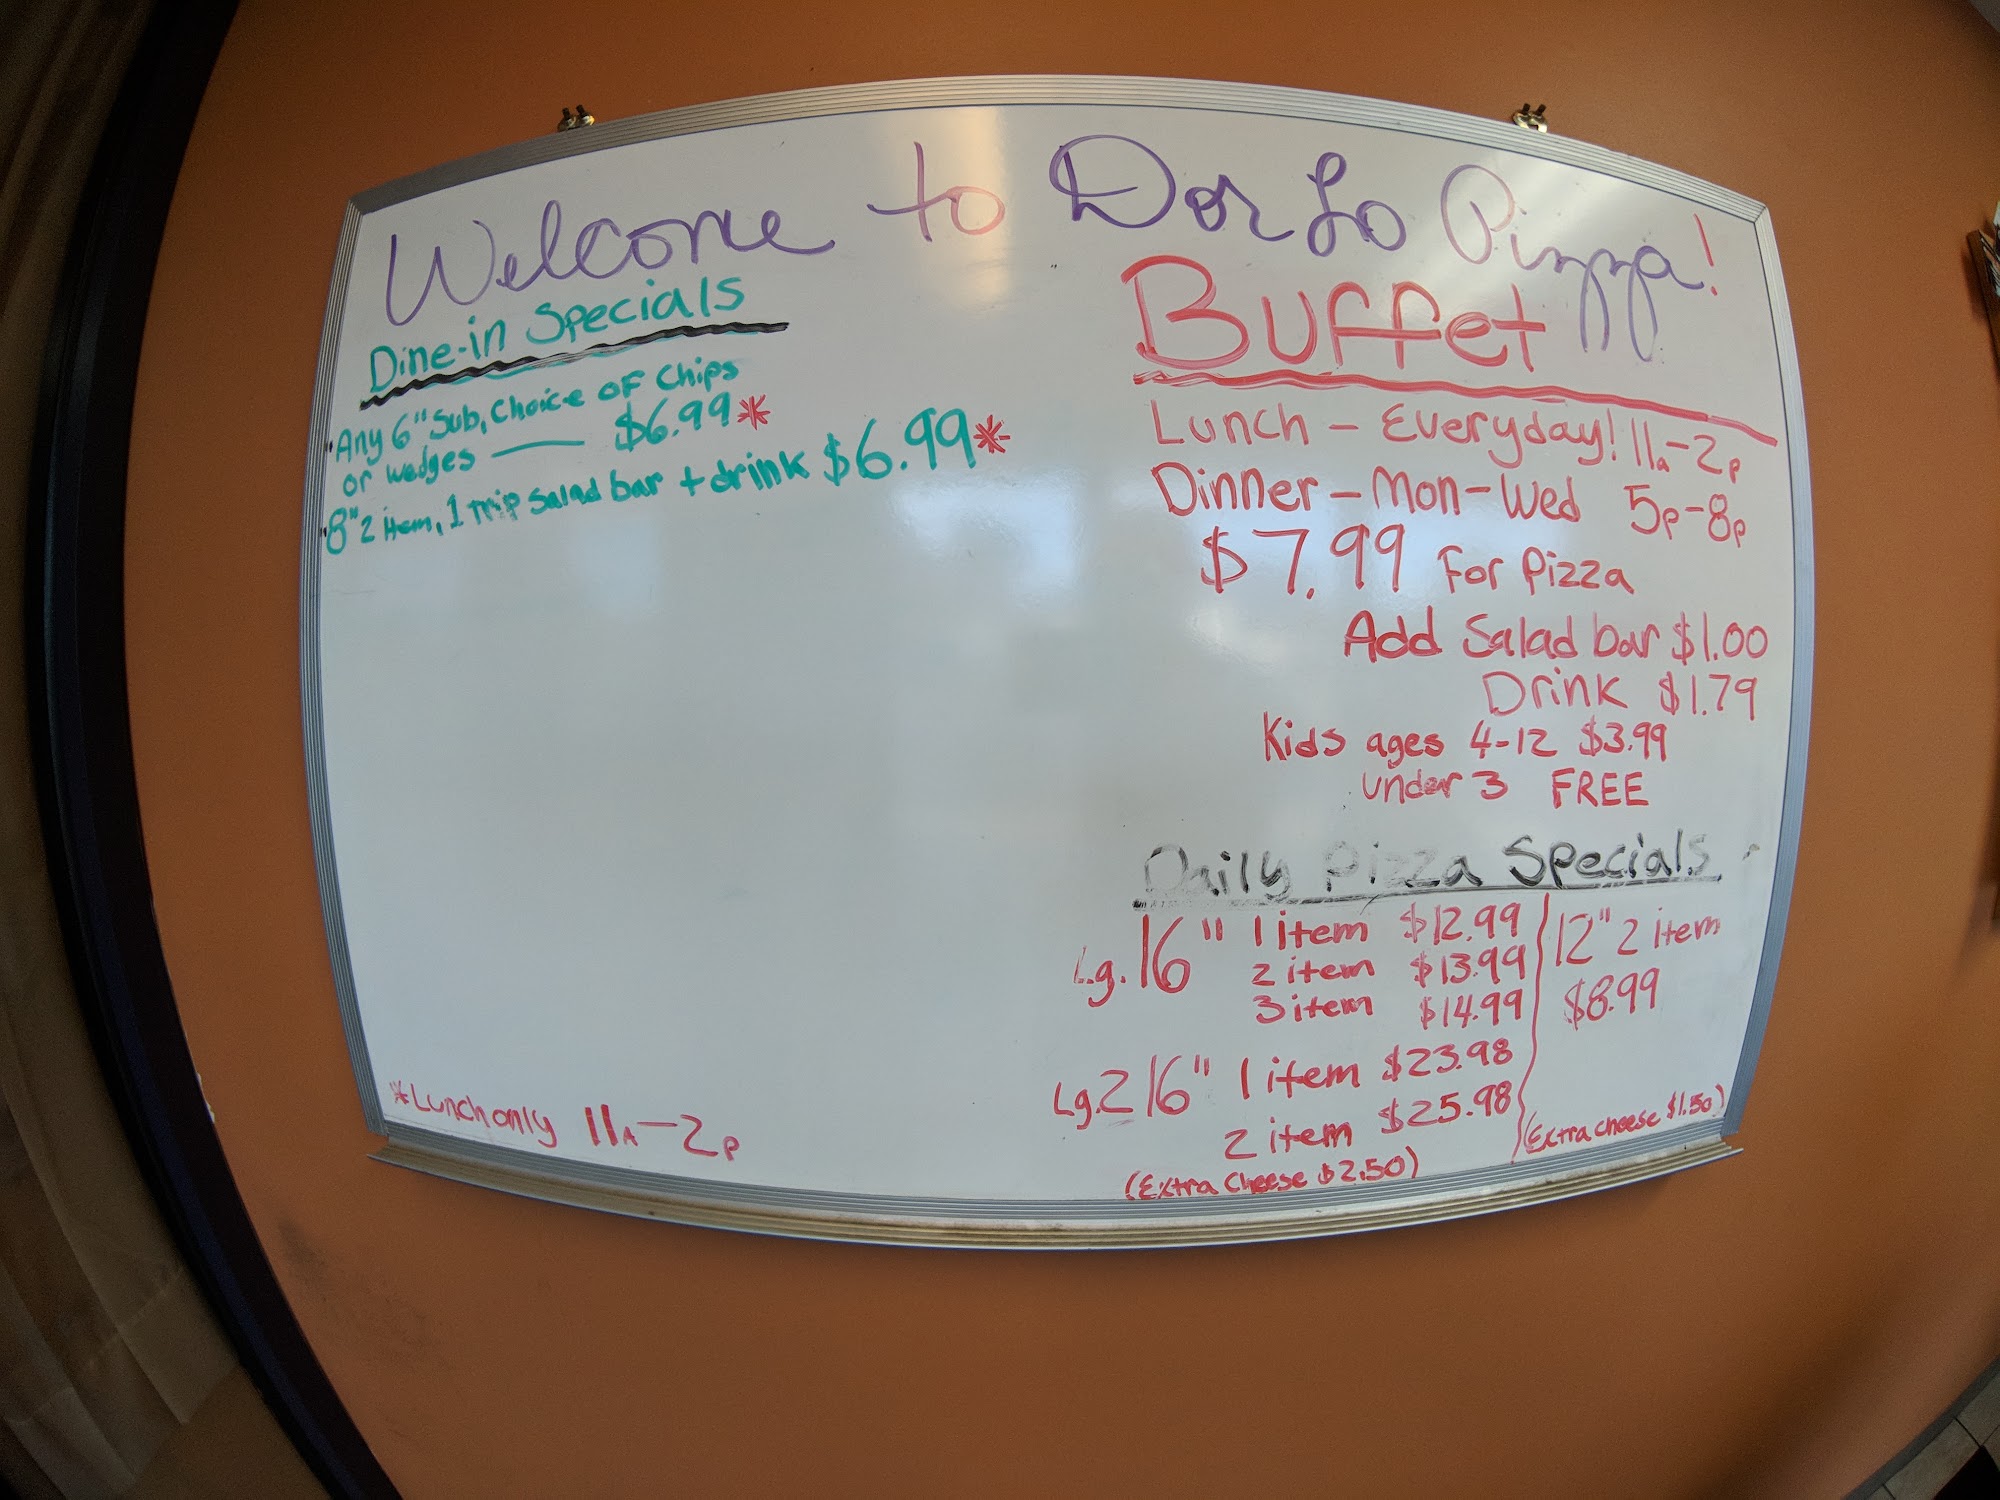 Welcome to DorLo Pizza!
Dine-in Specials
Any 6" Sub, Choice of Chips
or wedges — $6.99*
8" 2 item, 1 trip Salad bar + drink $6.99*
*Lunch only 11A-2p
Buffet
Lunch - Everyday! 11a-2p
Dinner - Mon-Wed 5p-8p
$7.99 For Pizza
Add Salad bar $1.00
Drink $1.79
Kids ages 4-12 $3.99
under 3 FREE
Daily Pizza Specials
Lg. 16" 1 item $12.99
2 item $13.99
3 item $14.99
Lg. 2 16" 1 item $23.98
2 item $25.98
(Extra Cheese $2.50)
12" 2 item
$8.99
(Extra cheese $1.50)